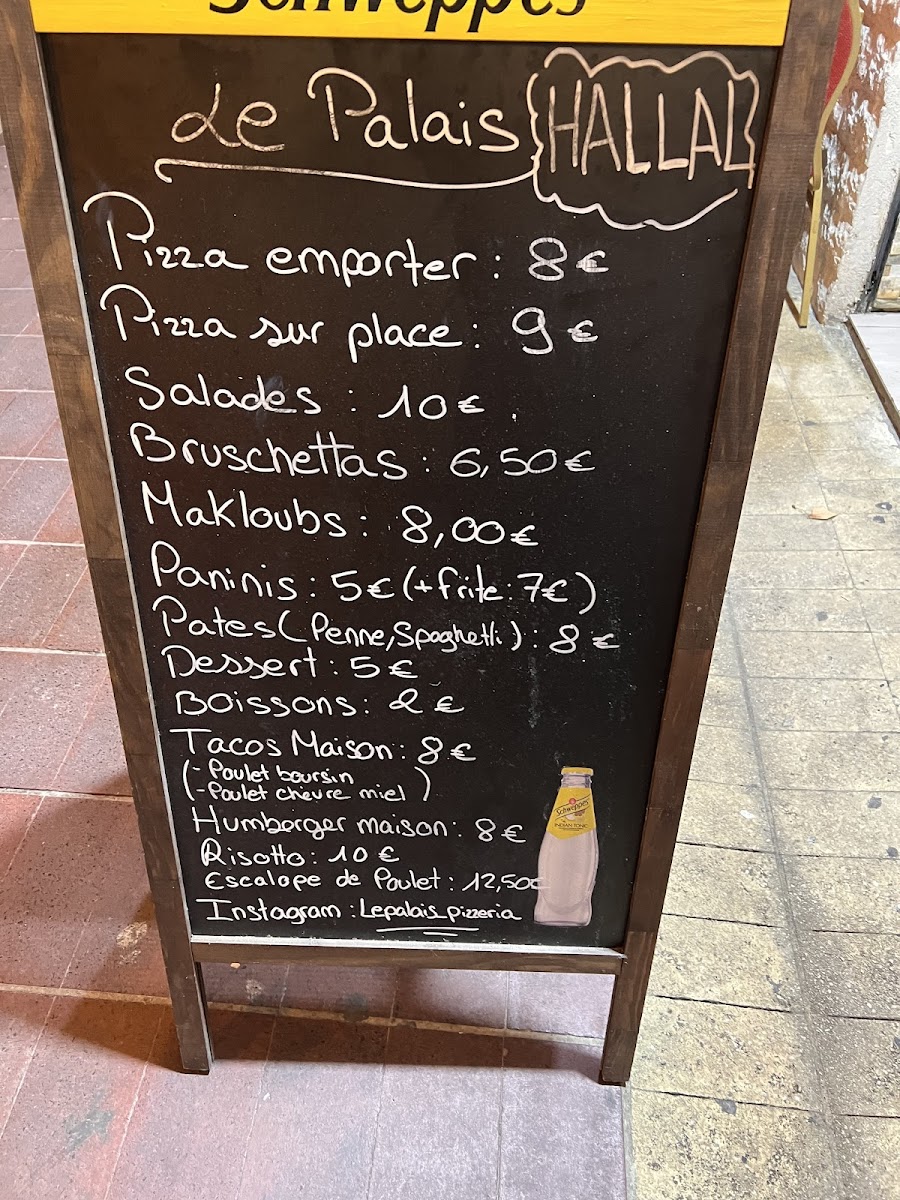 Schweppes
Le Palais HALLAL
Pizza emporter : 8€
Pizza sur place : 9€
Salades : 10€.
Bruschettas : 6,50€
Makloubs : 8,00€
Paninis : 5€ (+frite : 7€)
Pates (Penne, Spaghetti) : 8€
Dessert : 5€
Boissons : 2€
Tacos Maison : 8€
(- Poulet boursin
- Poulet chevre miel)
Humberger maison : 8€
Risotto : 10€
Escalope de Poulet : 12,50€
Instagram : Lepalais_pizzeria
Schweppes
INDIAN TONIC